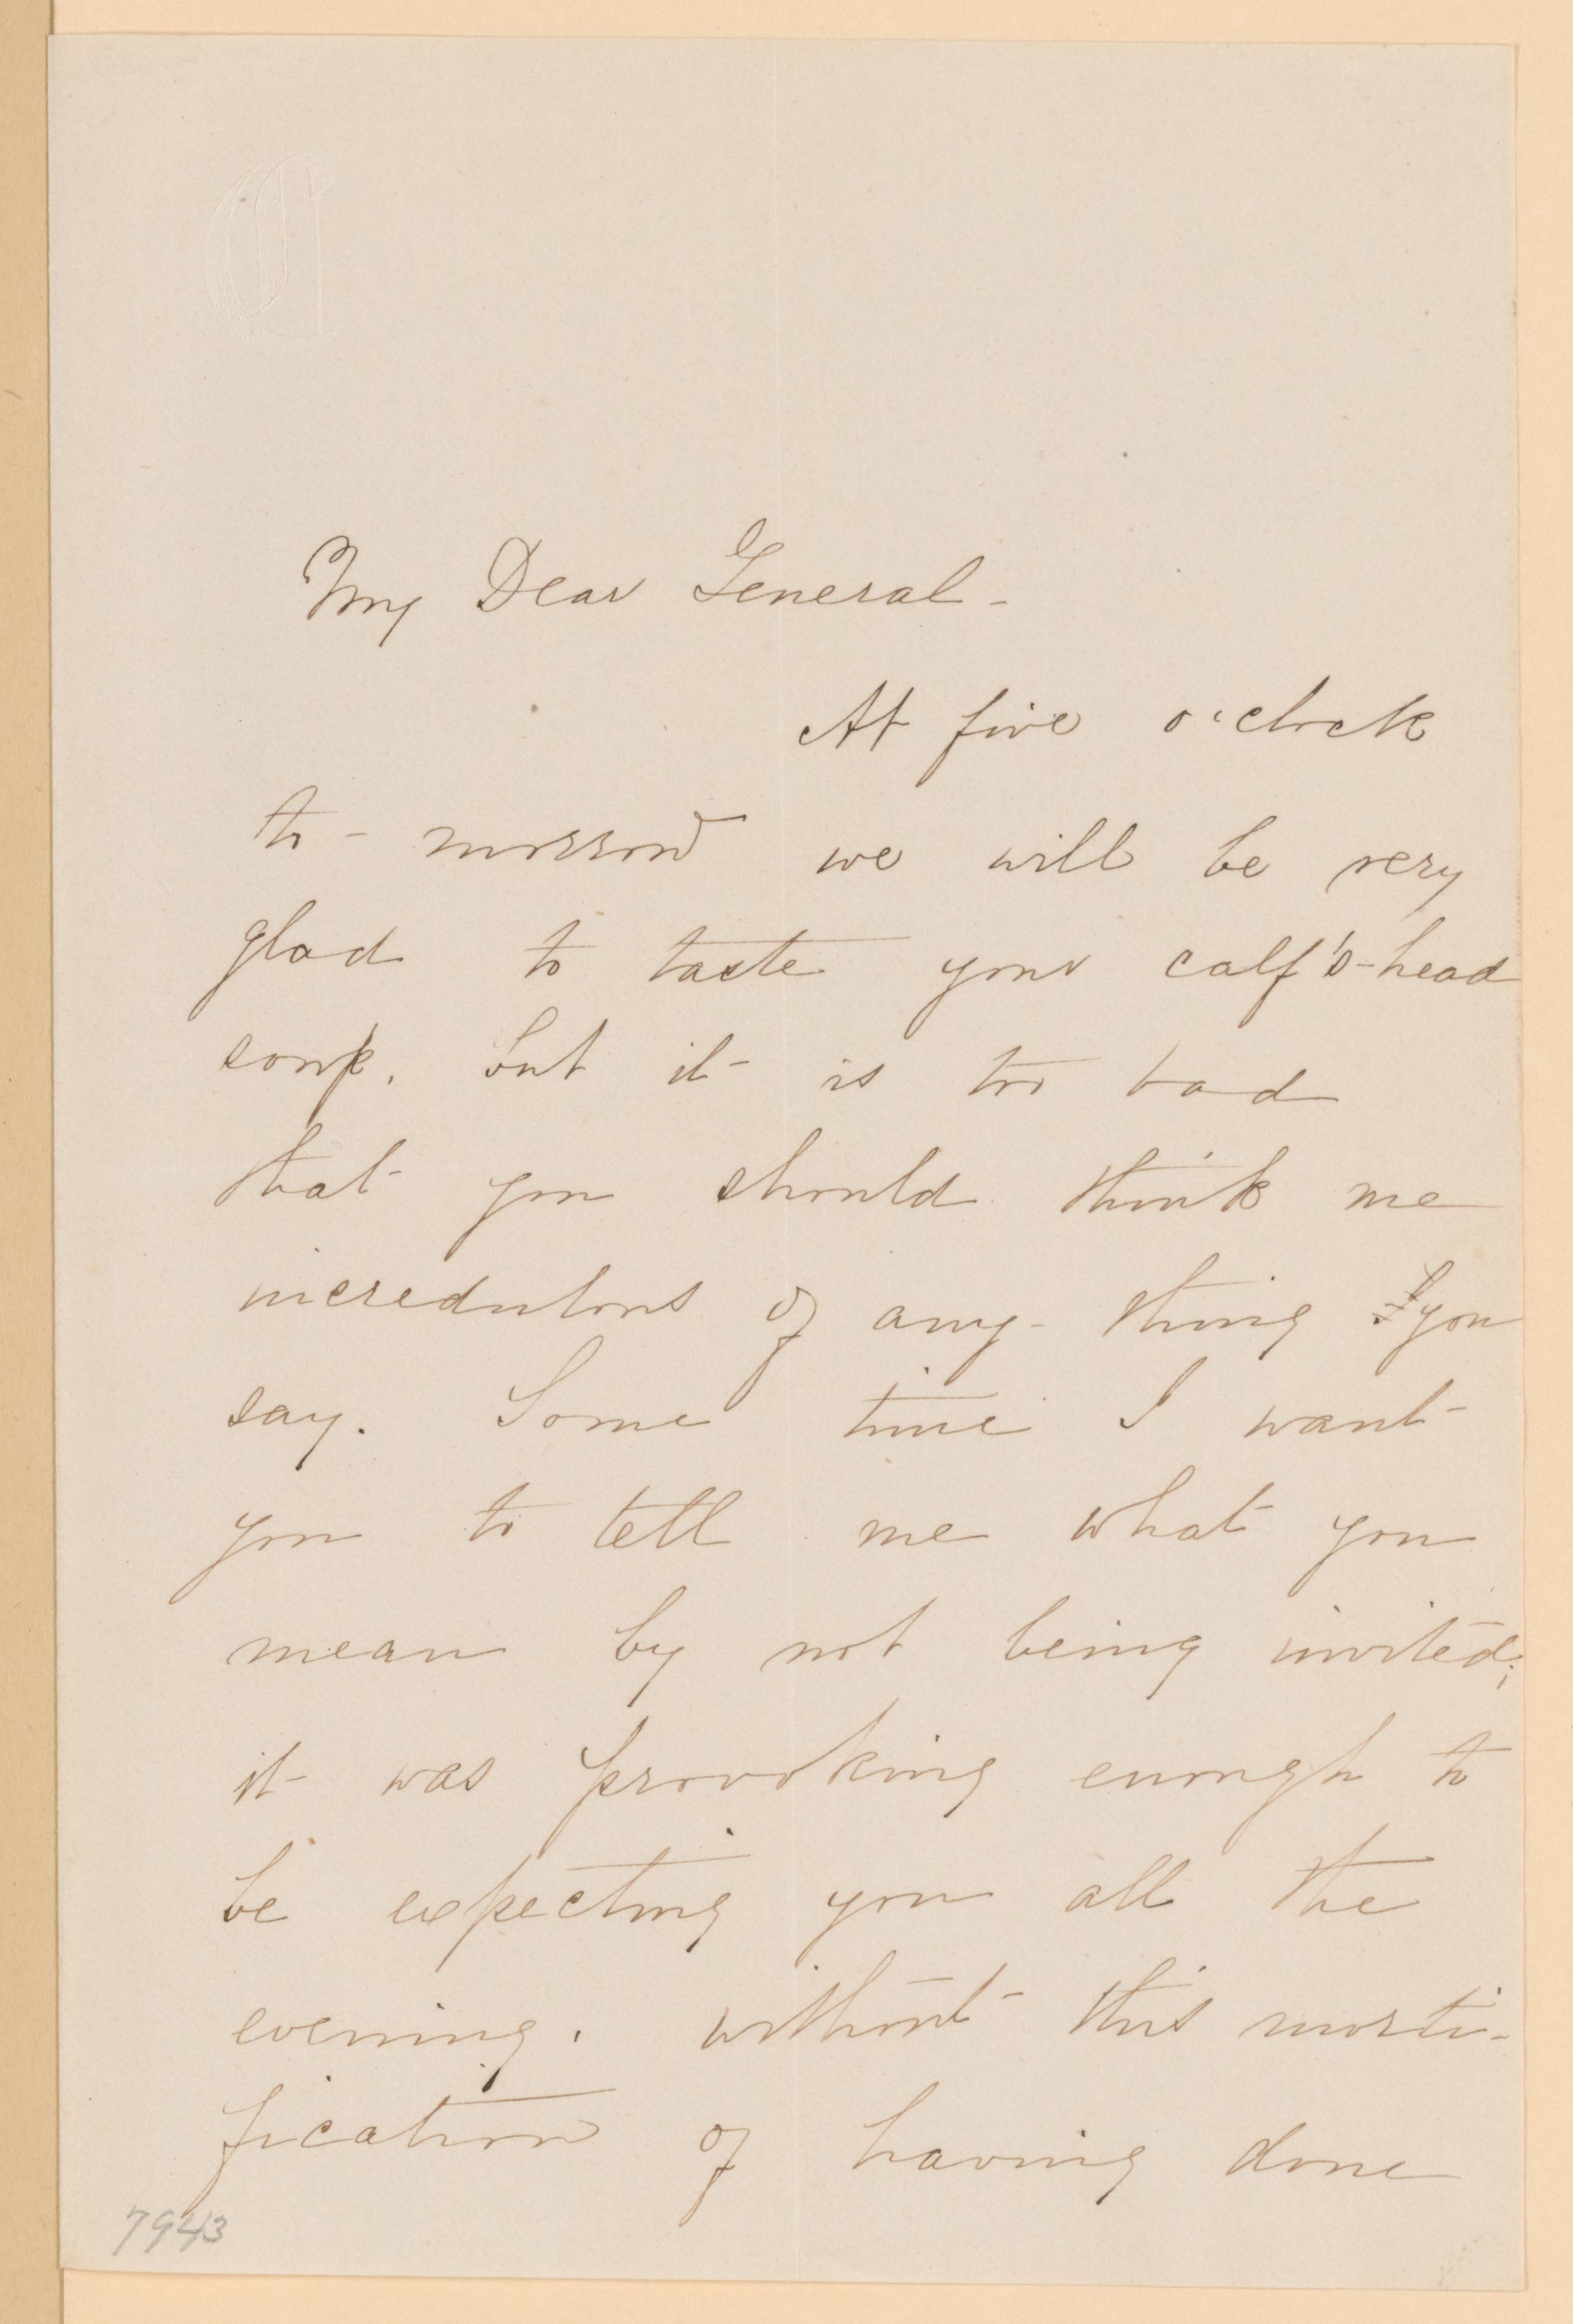 My Dear General-
At five o'clock
to-morrow we will be very
glad to taste your calf's-head
soup. but it is too bad
that you should think me
incredulous of any-thing you
say. Some time I want
you to tell me what you
mean by not being invited;
it was provoking enough to
be expecting you all the
evening. without this morti-
fication of having done
7943